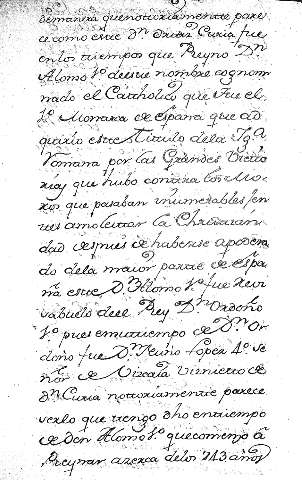 demanera quenotoriamente pare
ce como este Dn. Curia fue
en los tiempos que Reyno Dn.
Alonso 1º deeste nombre cognom
nado el Catholico que fue el
1º Monarca de España que ad
quirio este titulo dela Ygª
Romana por las Grandes Victo
rias que hubo contra los Mo
ros que pasaban inumerables
ves amolestar la Christian
dad despues de haberse apodera
do dela maior parte de Espa
ña este Dn. Alonso 1º fue
vabuelo deel Rey Dn. Ordoño
1º pues en tiempo de Dn. Or
doño fue Dn. Lopez 4º Se
ñor de Vizcaia Viznieto de
Dn. Curia notoriamente parece
serlo que tengo dho en tiempo
de Don Alonso 1º que comenzo á
Reynar acerca delos 743 años